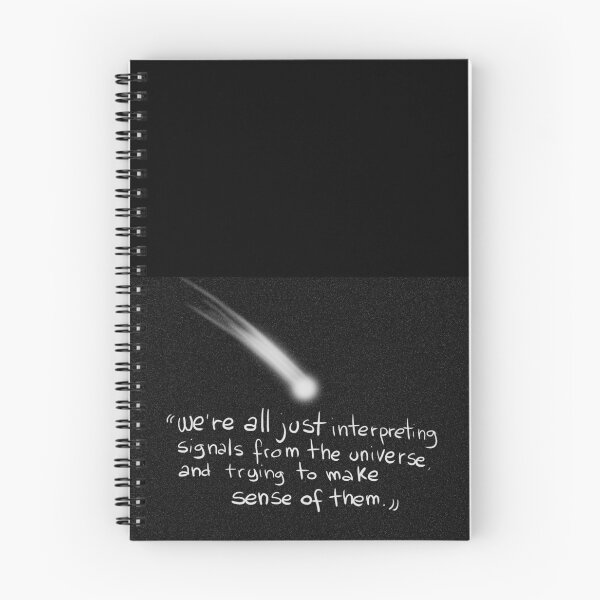 “we're all just interpreting
signals from the universe,
and trying to make
sense of them.„